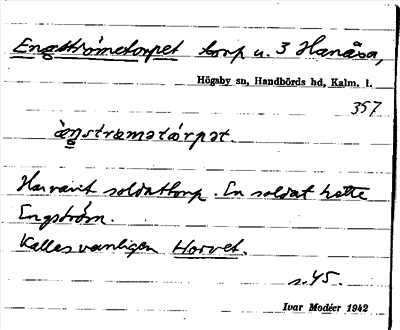 Engströmetorpet torp u. 3 Hanåsa,
Högsby sn, Handbörds hd, Kalm. l.
357
ὰŋstræmətórpət.
Har varit soldattorp. En soldat hette
Engström.
Kallas vanligen Horvet.
s. 45.
Ivar Modéer 1942